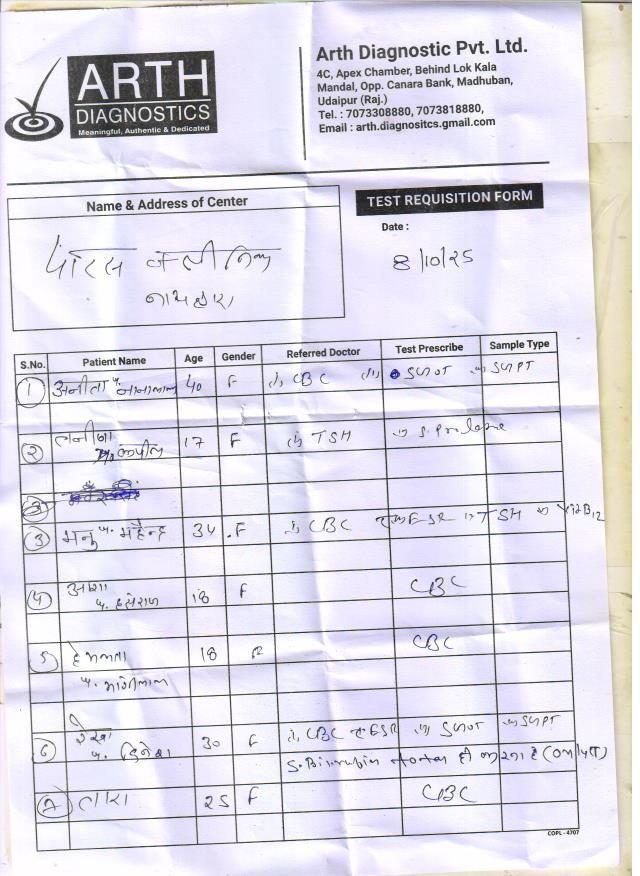 ARTH
DIAGNOSTICS
Meaningful, Authentic & Dedicated
Arth Diagnostic Pvt. Ltd.
4C, Apex Chamber, Behind Lok Kala
Mandal, Opp. Canara Bank, Madhuban,
Udaipur (Raj.)
Tel. : 7073308880, 7073818880,
Email : arth.diagnositcs.gmail.com
Name & Address of Center
TEST REQUISITION FORM
Date :
8/10/25
पारस क्लीनिक
नाथद्वारा
S.No. Patient Name Age Gender Referred Doctor Test Prescribe Sample Type
1 अनीता 40 F CBC SGOT SGPT
2 17 F TSH S.
3 मनु महेन्द्र 34 F CBC ESR TSH VitB12
4 आशा 18 F CBC
5 हेमलता 18 F CBC
6 रेखा 30 F CBC ESR SGOT SGPT
दिनेश S. ही करना है (only T)
7 तारा 25 F CBC
COPL - 4707